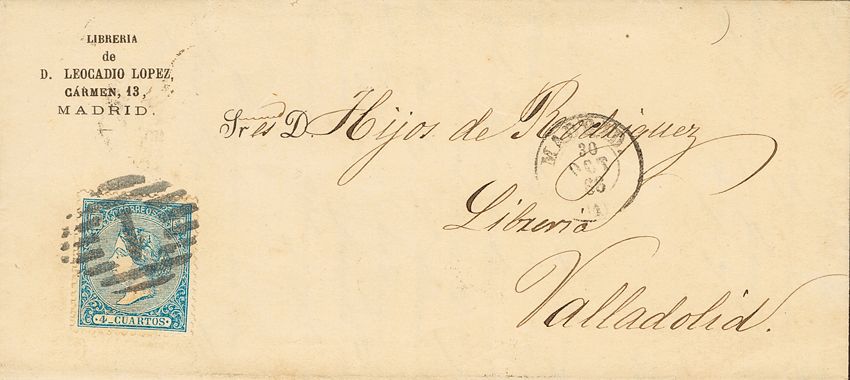 LIBRERIA
de
D. LEOCADIO LOPEZ,
CÁRMEN, 13,
MADRID.
Sres D. Hijos de Rodriguez
MADRID
30
OCT
(1)
Libreria
Valladolid.
CORREOS
4 CUARTOS